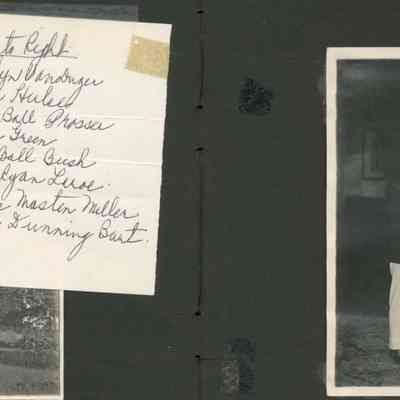 to Right
yn Vanduzer
Hulse
Ball Prosser
Green
Ball Bush
Ryan Leroe
Masten Miller
Dunning Bart.